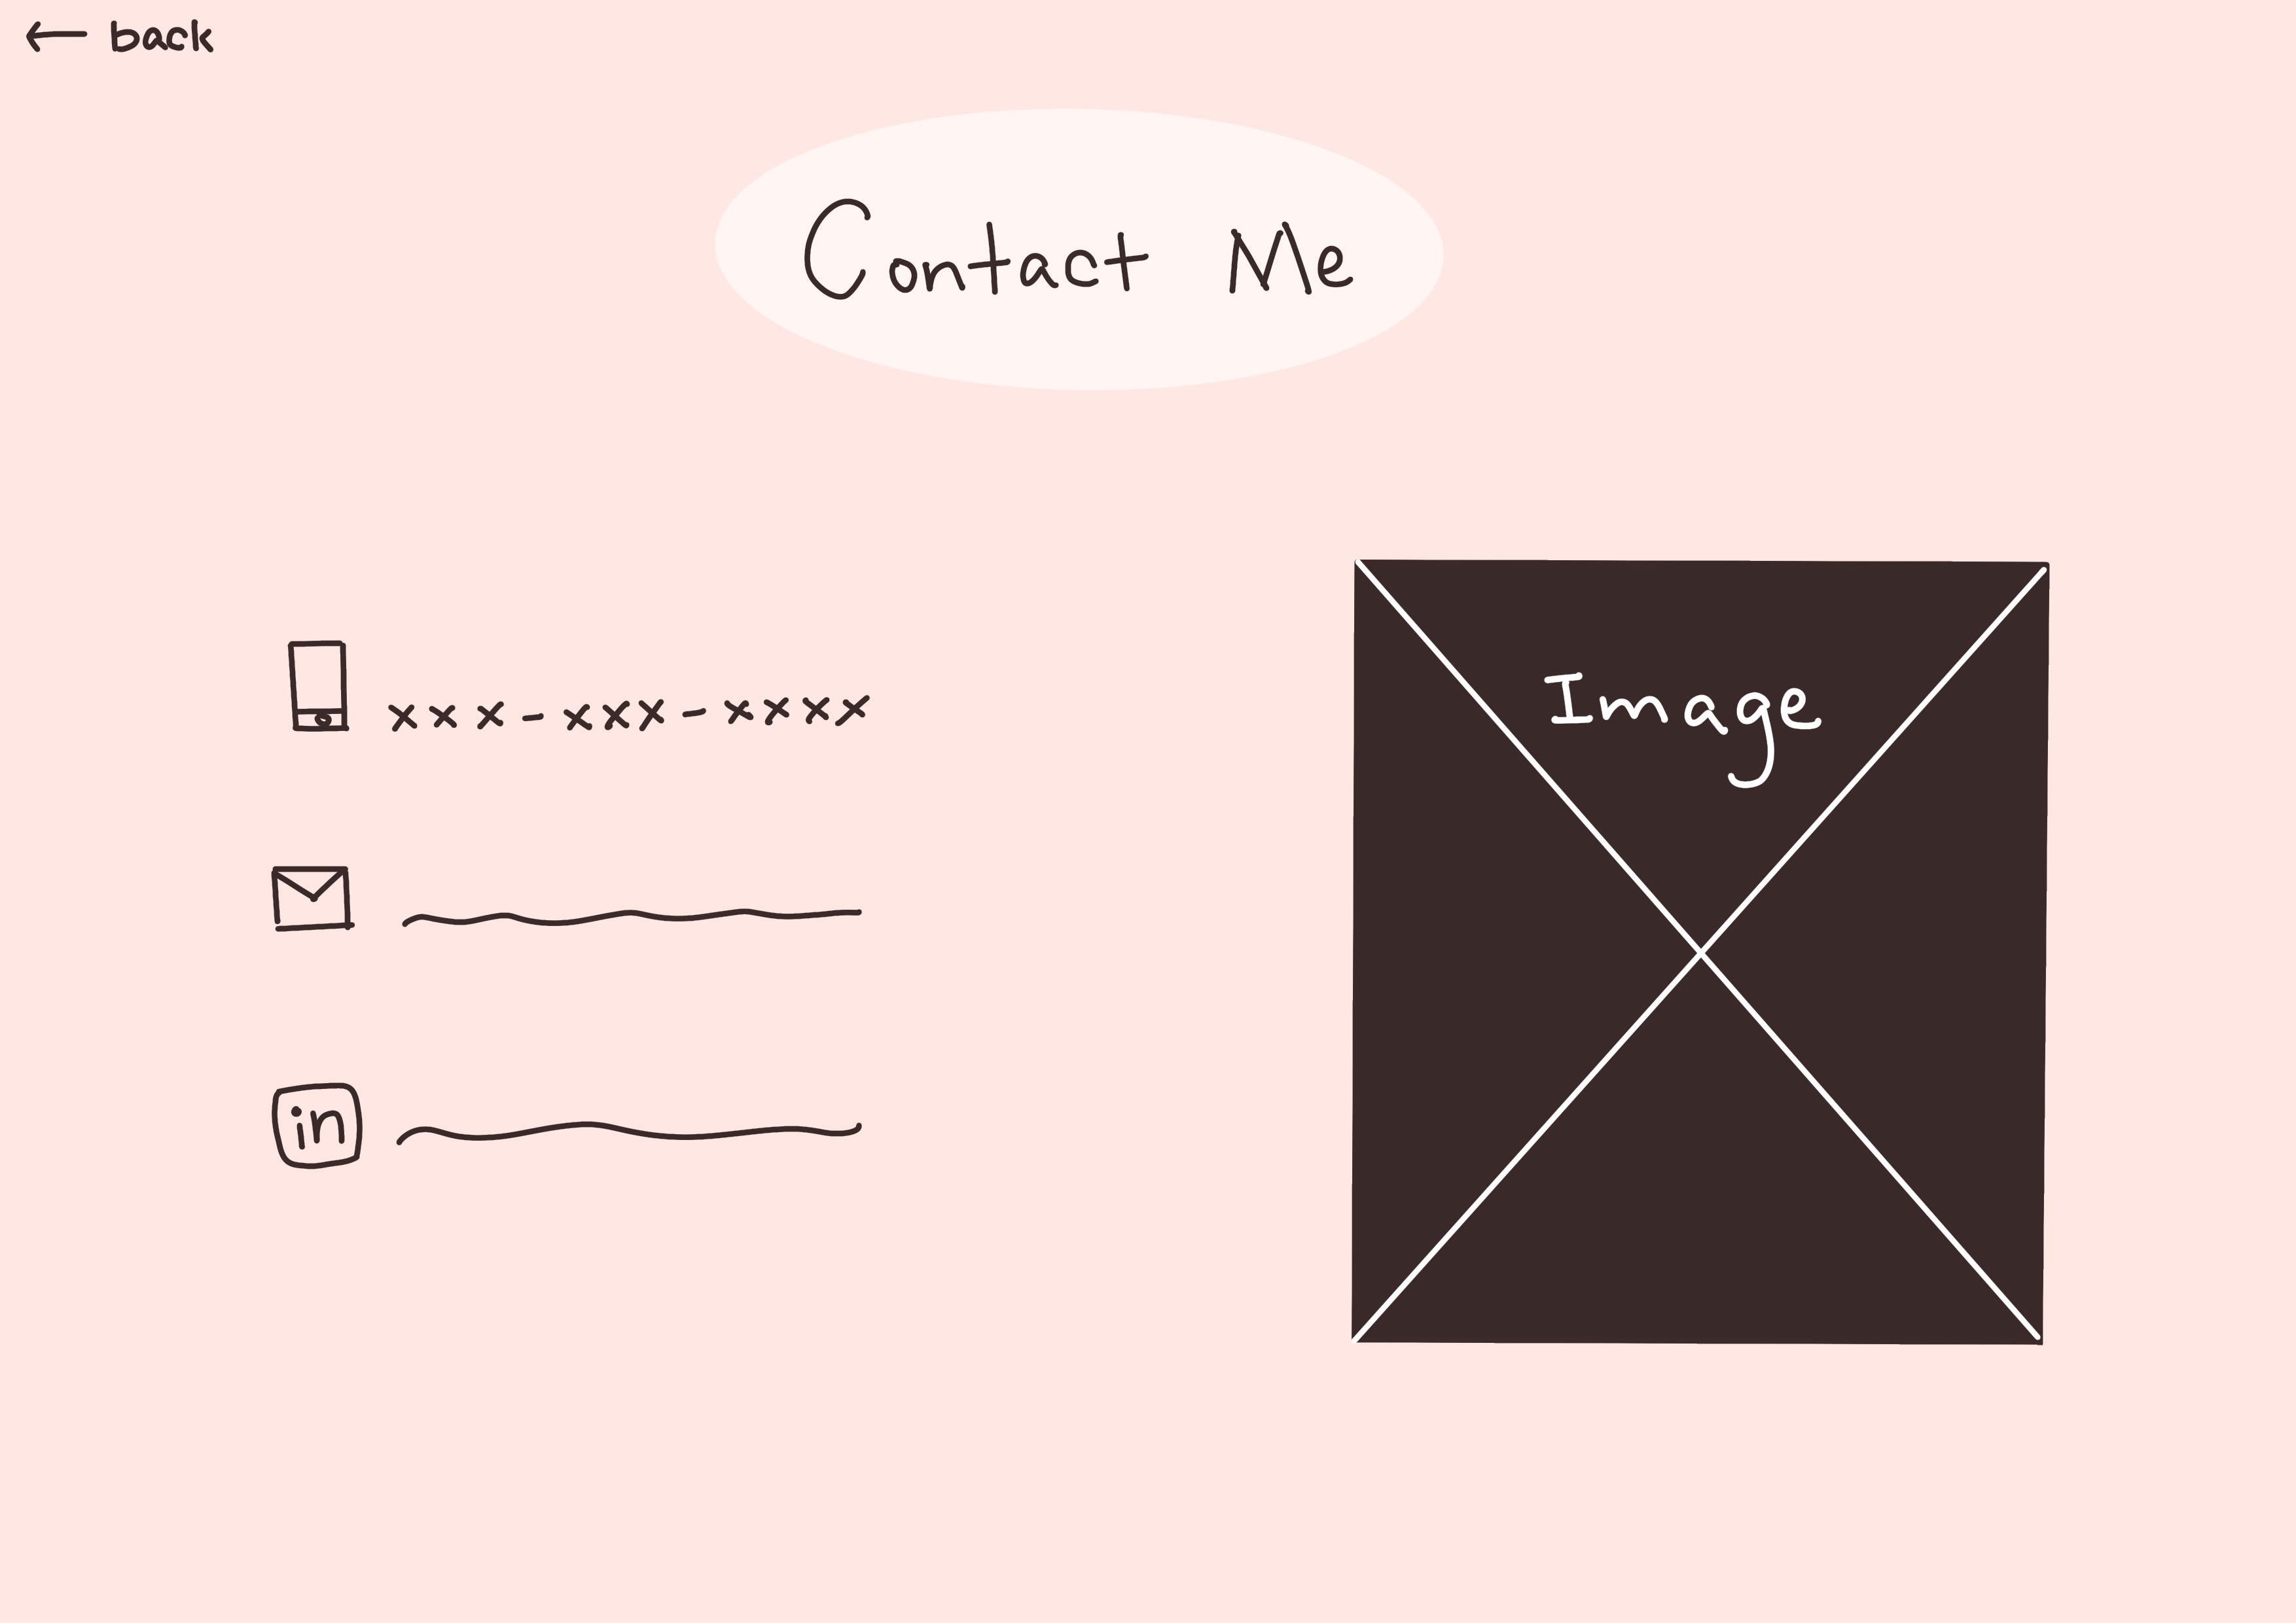 ← back
Contact Me
xxx-xxx-xxxx
Image
in